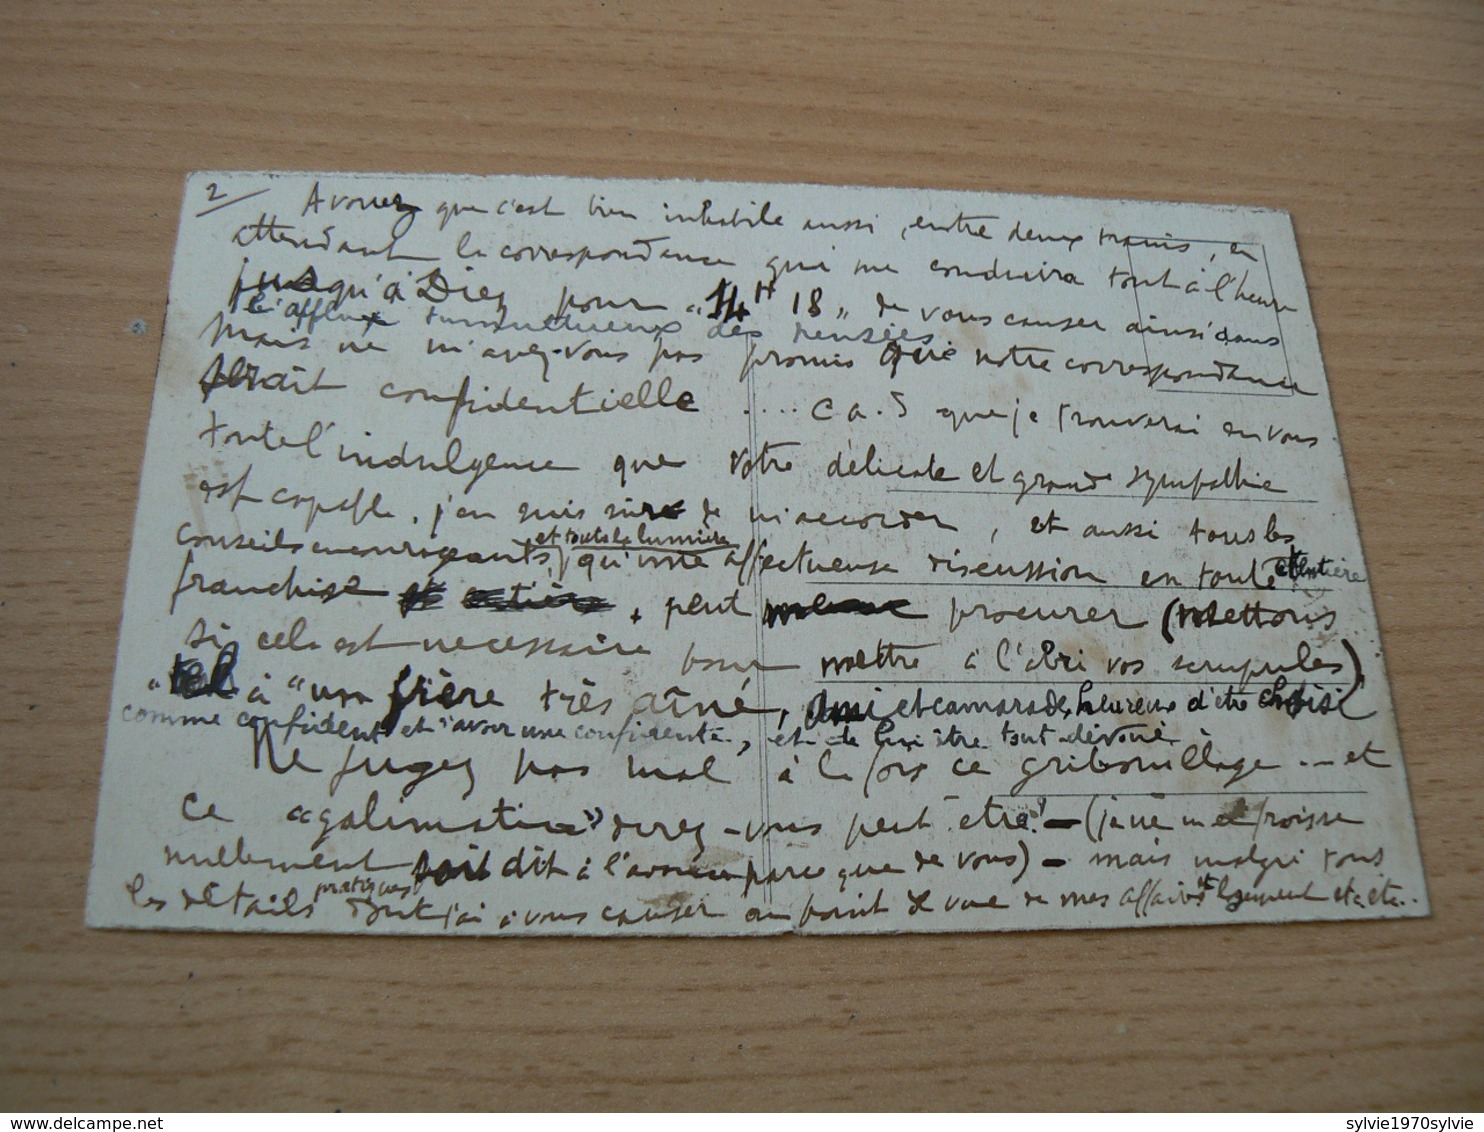 2/ Avouez que c'est bien inhabile aussi, entre deux trains, en
attendant la correspondance qui me conduira tout à l'heure
jusqu'à Diez pour "14H 18" de vous causer ainsi dans
l'afflux tumultueux des pensées
mais ne m'avez-vous pas promis que notre correspondance
serait confidentielle .... que je trouverai en vous
toute l'indulgence que votre délicate et grande sympathie
est capable, j'en suis sûre de m'accorder, et aussi tous les
conseils encourageants, et toute la lumière qu'une affectueuse discussion en toute et entière
franchise, peut procurer (mettons
si cela est necessaire pour mettre à l'abri vos scrupules)
"tel à "un frère très aîné, ami et camarade, heureux d'être choisi
comme confident et d'avoir une confidente, et de lui être tout dévoué.
Ne jugez pas mal à la fois ce gribouillage ... et
ce "galimatias" direz-vous peut-être! - (je ne me froisse
nullement soit dit à l'avance parce que de vous) - mais malgré tous
les détails pratiques dont j'ai à vous causer au point de vue de mes affaires et logement etc etc..
sylvie1970sylvie